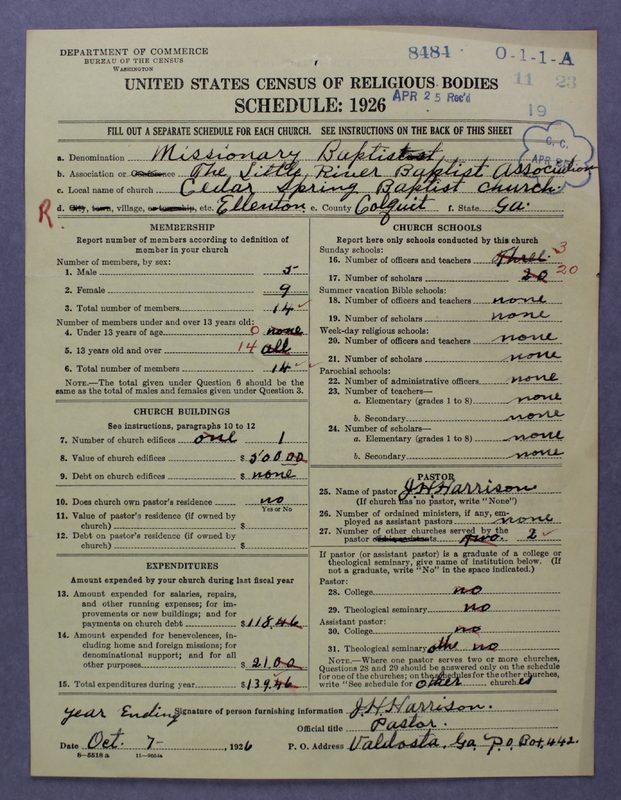 DEPARTMENT OF COMMERCE
BUREAU OF THE CENSUS
WASHINGTON
8484
O-1-1-A
11 23
19
UNITED STATES CENSUS OF RELIGIOUS BODIES
SCHEDULE: 1926
APR 25 Rec'd
FILL OUT A SEPARATE SCHEDULE FOR EACH CHURCH. SEE INSTRUCTIONS ON THE BACK OF THIS SHEET
C. C.
APR
a. Denomination Missionary Baptist
b. Association or Conference The Little River Baptist Association
c. Local name of church Cedar Spring Baptist church.
R.
d. City, town, village, or township, etc. Ellenton e. County Colquit f. State Ga.
MEMBERSHIP
Report number of members according to definition of
member in your church
Number of members, by sex:
1. Male 5
2. Female 9
3. Total number of members 14
Number of members under and over 13 years old:
4. Under 13 years of age 0 none
5. 13 years old and over 14 all
6. Total number of members 14
NOTE.—The total given under Question 6 should be the
same as the total of males and females given under Question 3.
CHURCH BUILDINGS
See instructions, paragraphs 10 to 12
7. Number of church edifices one 1
8. Value of church edifices $ 500.00
9. Debt on church edifices $ none
10. Does church own pastor's residence no
Yes or No
11. Value of pastor's residence (if owned by
church) $
12. Debt on pastor's residence (if owned by
church) $
EXPENDITURES
Amount expended by your church during last fiscal year
13. Amount expended for salaries, repairs,
and other running expenses; for im-
provements or new buildings; and for
payments on church debt $118.46
14. Amount expended for benevolences, in-
cluding home and foreign missions; for
denominational support; and for all
other purposes $ 21.00
15. Total expenditures during year $139.46
CHURCH SCHOOLS
Report here only schools conducted by this church
Sunday schools:
16. Number of officers and teachers Three 3
17. Number of scholars 20 20
Summer vacation Bible schools:
18. Number of officers and teachers none
19. Number of scholars none
Week-day religious schools:
20. Number of officers and teachers none
21. Number of scholars none
Parochial schools:
22. Number of administrative officers none
23. Number of teachers—
a. Elementary (grades 1 to 8) none
b. Secondary none
24. Number of scholars—
a. Elementary (grades 1 to 8) none
b. Secondary none
PASTOR
25. Name of pastor J. H. Harrison
(If church has no pastor, write "None")
26. Number of ordained ministers, if any, em-
ployed as assistant pastors none
27. Number of other churches served by the
pastor two. 2
If pastor (or assistant pastor) is a graduate of a college or
theological seminary, give name of institution below. (If
not a graduate, write "No" in the space indicated.)
Pastor:
28. College no
29. Theological seminary no
Assistant pastor:
30. College no
31. Theological seminary othe no
NOTE.—Where one pastor serves two or more churches,
Questions 28 and 29 should be answered only on the schedule
for one of the churches; on the schedules for the other churches,
write "See schedule for other churches
year Ending
Signature of person furnishing information J. H. Harrison.
Official title Pastor.
Date Oct. 7- , 1926 P. O. Address Valdosta, Ga P.O. Box, 442.
8—5518a 11—9664a